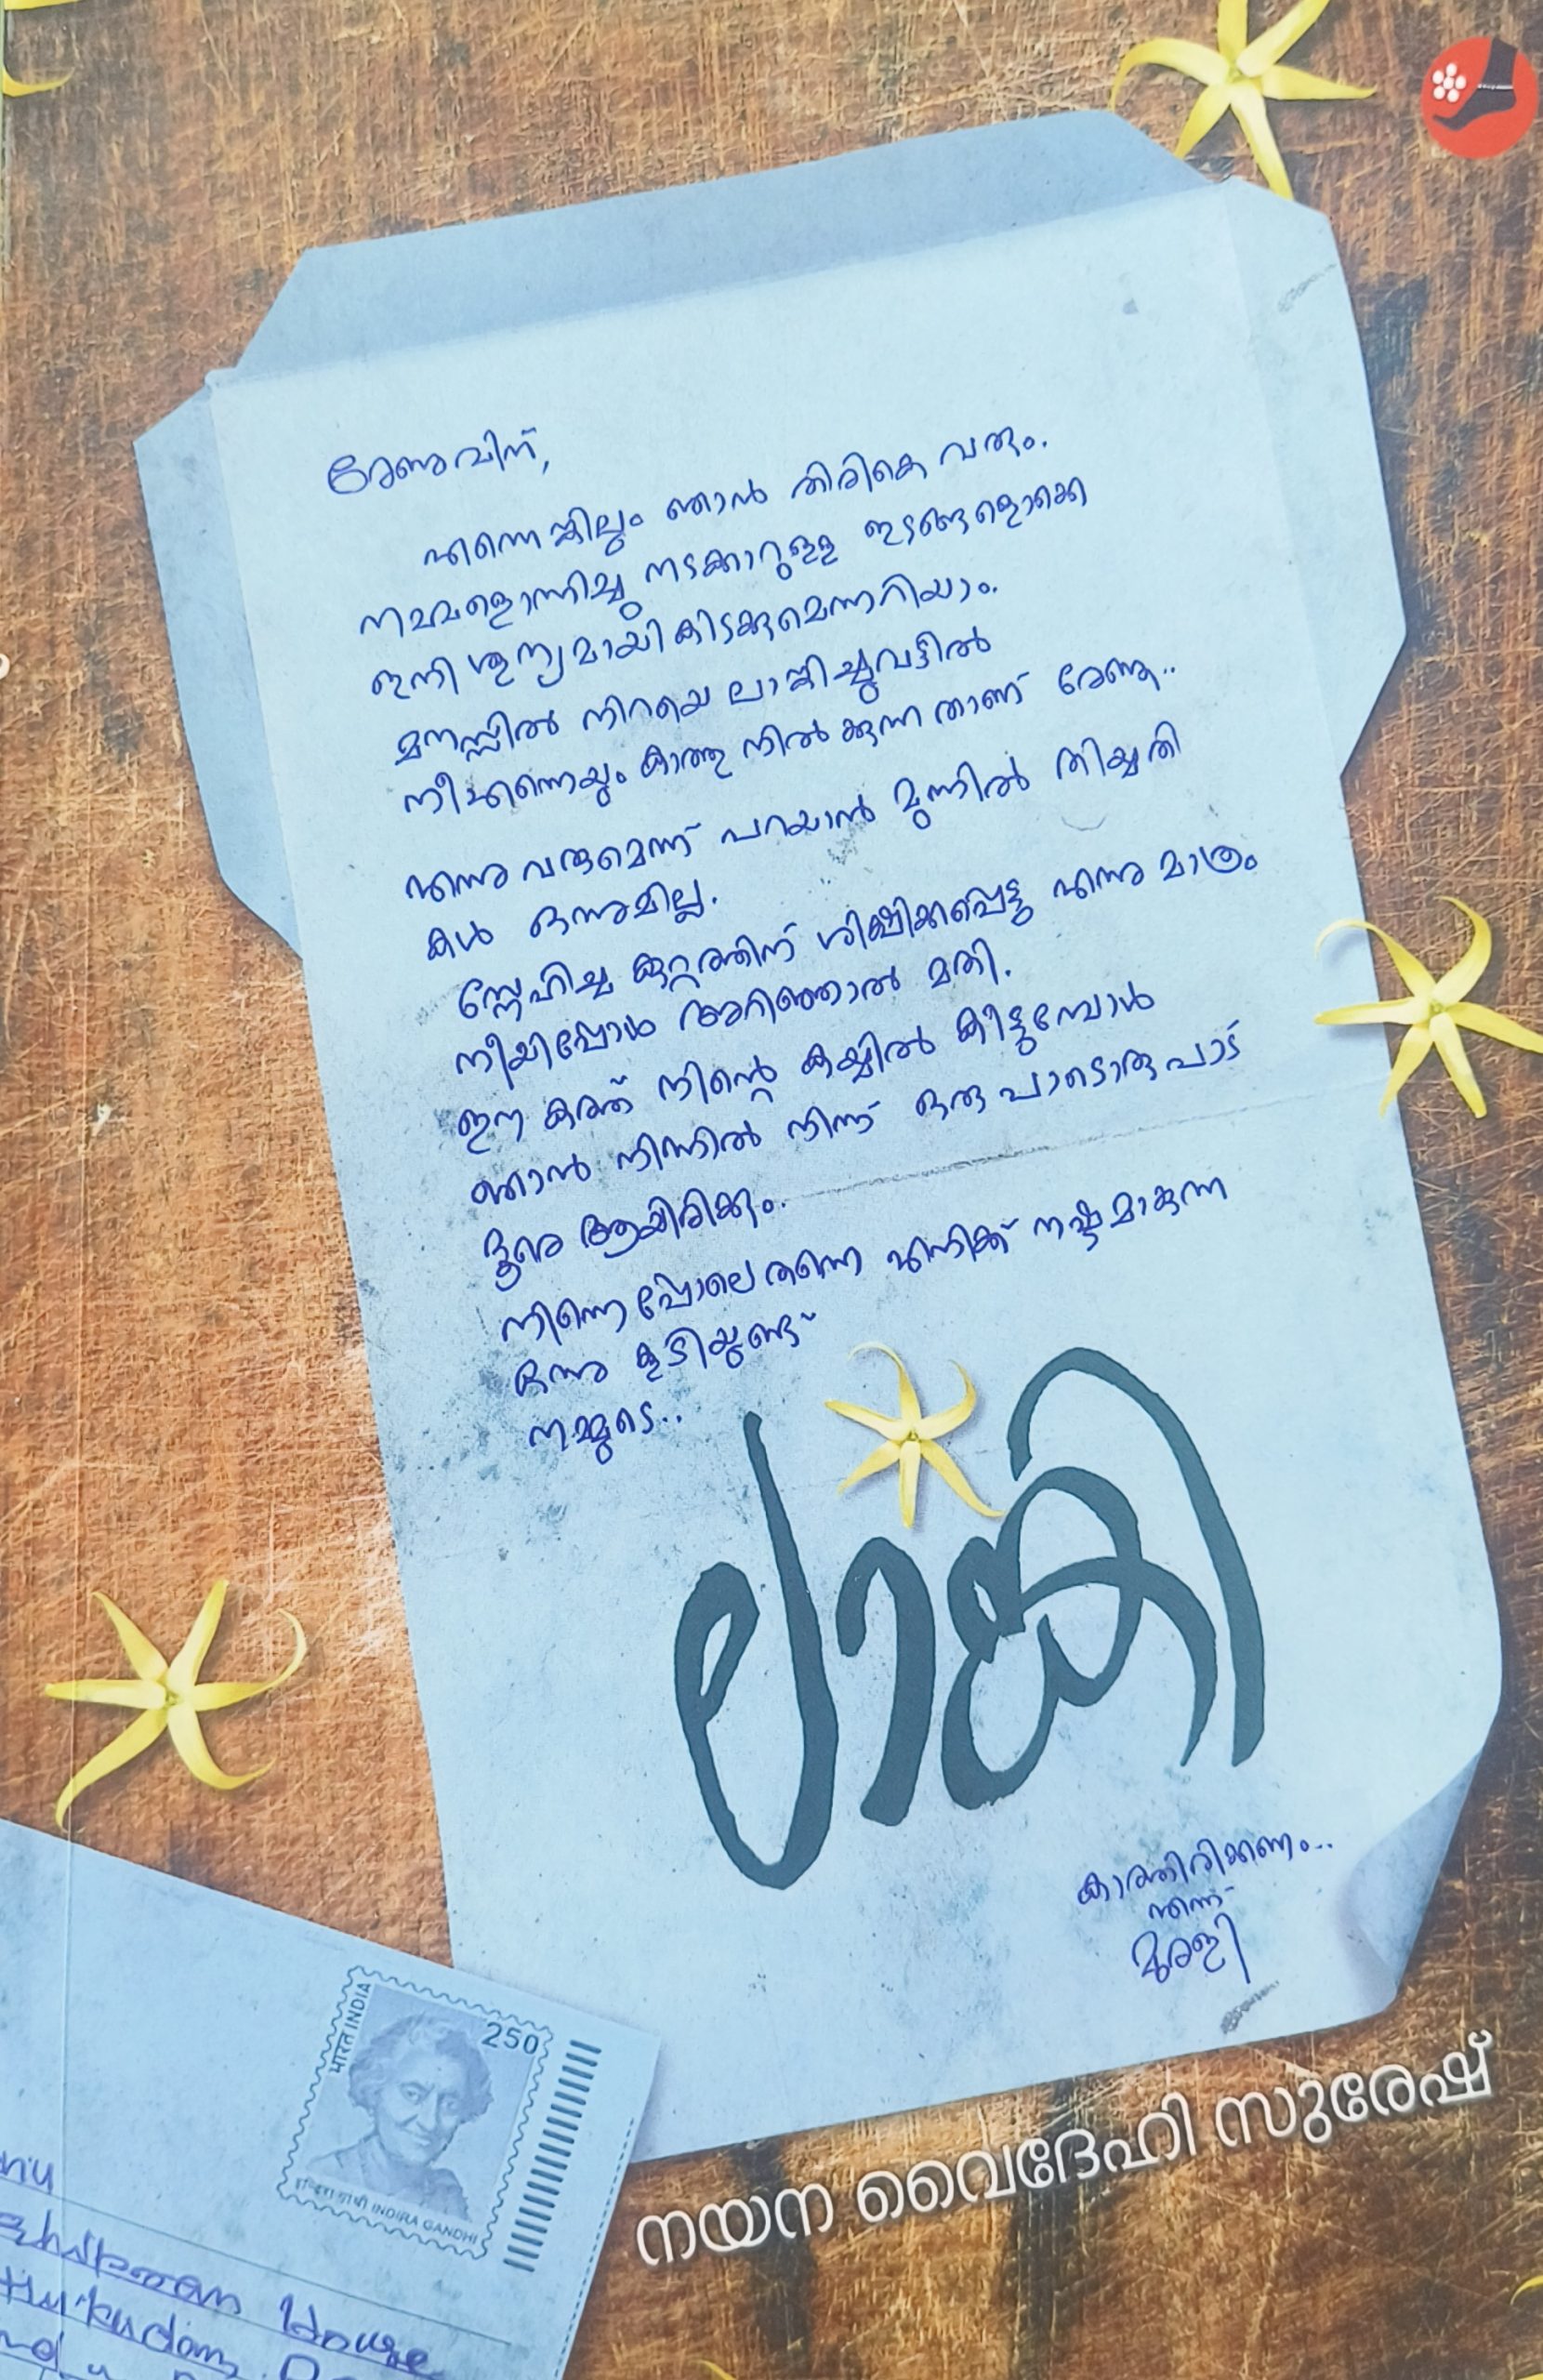 രേണുവിന്,
എന്നെങ്കിലും ഞാൻ തിരികെ വരും.
നമ്മളൊന്നിച്ചു നടക്കാറുള്ള ഇടങ്ങളൊക്കെ
ഇനി ശൂന്യമായി കിടക്കുമെന്നറിയാം.
മനസ്സിൽ നിറയെ ലാങ്കിച്ചുവട്ടിൽ
നീ എന്നെയും കാത്തു നിൽക്കുന്നതാണ് രേണൂ..
എന്നു വരുമെന്ന് പറയാൻ മുന്നിൽ തിയ്യതി
കൾ ഒന്നുമില്ല.
സ്നേഹിച്ച കുറ്റത്തിന് ശിക്ഷിക്കപ്പെട്ടു എന്നു മാത്രം
നീയിപ്പോൾ അറിഞ്ഞാൽ മതി.
ഈ കത്ത് നിന്റെ കയ്യിൽ കിട്ടുമ്പോൾ
ഞാൻ നിന്നിൽ നിന്ന് ഒരുപാടൊരുപാട്
ദൂരെ ആയിരിക്കും.
നിന്നെപ്പോലെ തന്നെ എനിക്ക് നഷ്ടമാകുന്ന
ഒന്നു കൂടിയുണ്ട്
നമ്മുടെ..
ലാങ്കി
കാത്തിരിക്കണം...
എന്ന്
മുരളി
നയന വൈദേഹി സുരേഷ്
भारत INDIA
250
INDIRA GANDHI
House